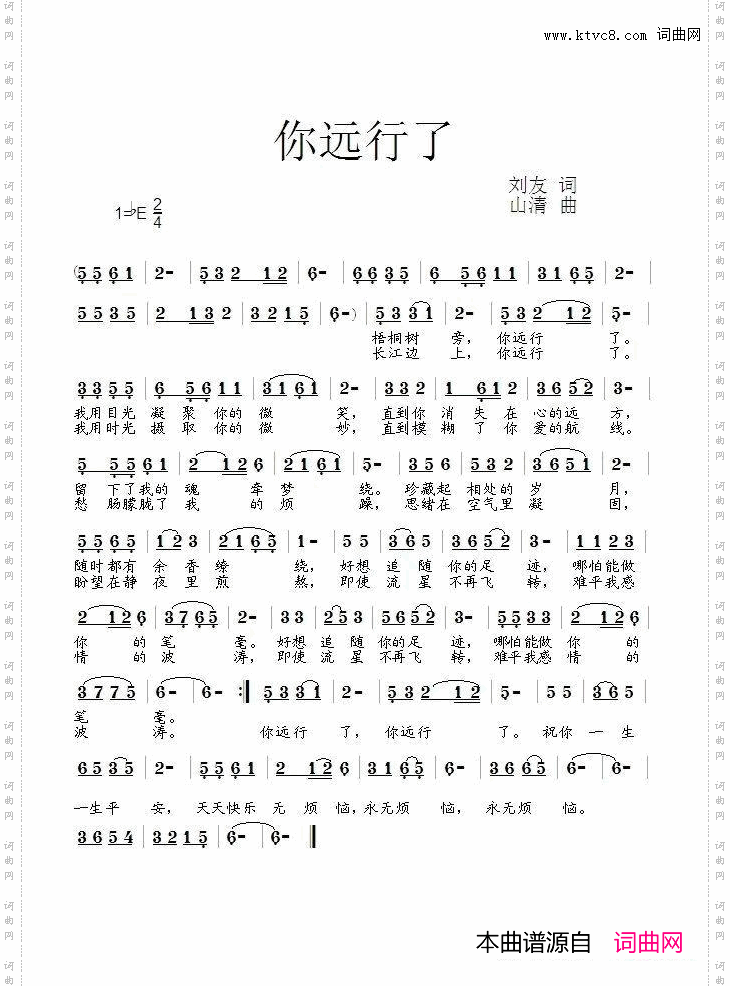 www.ktvc8.com 词曲网
你远行了
刘友 词
1=♭E 2/4
山清 曲
(5561 | 2- | 532 12 | 6- | 6635 | 6 5611 | 3165 | 2- |
5535 | 2 132 | 3215 | 6-) | 5331 | 2- | 532 12 | 5- |
梧桐树 旁，你远行 了。
长江边 上，你远行 了。
3355 | 6 5611 | 3161 | 2- | 332 | 1 612 | 3652 | 3- |
我用目光 凝 聚 你的 微 笑，直到你 消 失 在 心的远 方，
我用时光 摄 取 你的 微 妙，直到模 糊 了 你 爱的航 线。
5 5561 | 2 126 | 2161 | 5- | 356 | 5532 | 3651 | 2- |
留 下了我的 魂 牵梦 绕。珍藏起 相处的 岁 月，
愁 肠朦胧了 我 的 烦 躁，思绪在 空气里 凝 固，
5565 | 123 | 2165 | 1- | 55 | 365 | 3652 | 3- | 1123 |
随时都有 余 香缭 绕，好想 追 随 你的足 迹，哪怕能做
盼望在静 夜 里 煎 熬，即使 流 星 不再飞 转，难平我感
2 126 | 3765 | 2- | 33 | 253 | 5652 | 3- | 5533 | 2 126 |
你 的 笔 毫。好想 追 随 你的足 迹，哪怕能做 你 的
情 的 波 涛，即使 流 星 不再飞 转，难平我感 情 的
3775 | 6- | 6- :| 5331 | 2- | 532 12 | 5- | 55 | 365 |
笔 毫。
波 涛。 你远行 了，你远行 了。祝你 一 生
6535 | 2- | 5561 | 2 126 | 3165 | 6- | 3665 | 6- | 6- |
一生平 安，天天快乐 无 烦 恼，永无烦 恼，永无烦 恼。
3654 | 3215 | 6- | 6- ‖
本曲谱源自 词曲网